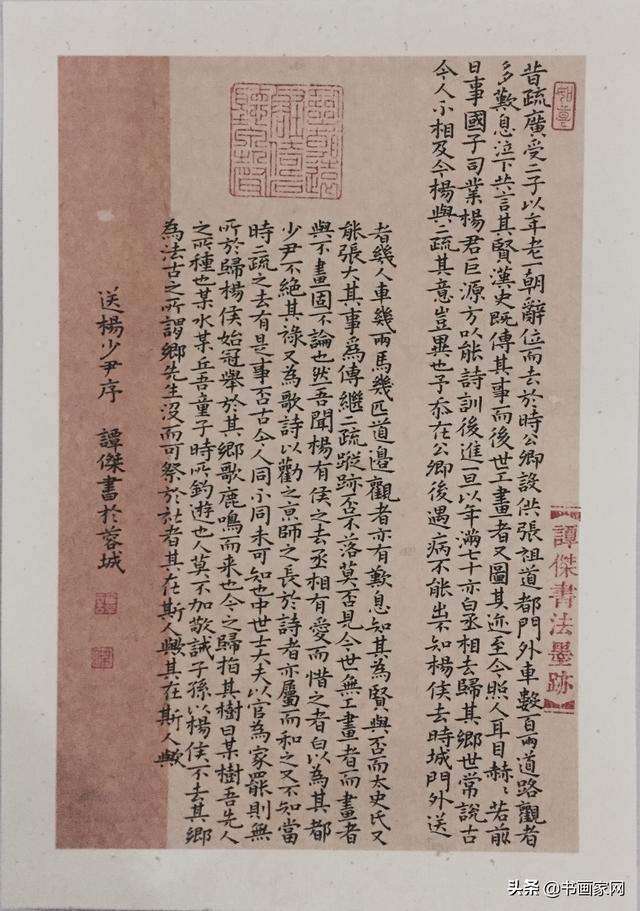 如意
昔疏廣受二子以年老一朝辭位而去於時公卿設供張祖道都門外車數百兩道路觀者
多歎息泣下共言其賢漢史既傳其事而後世工畫者又圖其迹至今照人耳目赫〻若前
日事國子司業楊君巨源方以能詩訓後進一旦以年滿七十亦白丞相去歸其鄉世常說古
今人不相及今楊與二疏其意豈異也予忝在公卿後遇病不能出不知楊侯去時城門外送
者幾人車幾兩馬幾匹道邊觀者亦有歎息知其為賢與否而太史氏又
能張大其事爲傳繼二疏蹤跡否不落莫否見今世無工畫者而畫者
與不畫固不論也然吾聞楊有侯之去丞相有愛而惜之者白以為其都
少尹不絕其祿又為歌詩以勸之京師之長於詩者亦屬而和之又不知當
時二疏之去有是事否古今人同不同未可知也中世士大夫以官為家罷則無
所於歸楊侯始冠舉於其鄉歌鹿鳴而來也今之歸指其樹曰某樹吾先人
之所種也某水某丘吾童子時所釣遊也人莫不加敬誡子孫以楊侯不去其鄉
為法古之所謂鄉先生沒而可祭於社者其在斯人歟其在斯人歟
送楊少尹序 譚傑書於蓉城
譚傑書法墨跡
头条 @书画家网